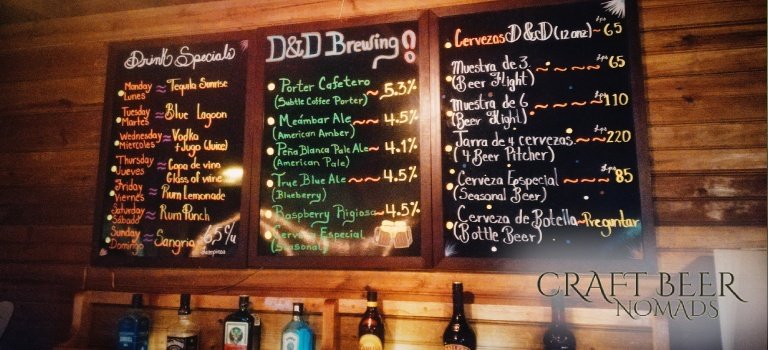 Drink Specials
Monday
Lunes ≈ Tequila Sunrise
Tuesday
Martes ≈ Blue Lagoon
Wednesday
Miercoles ≈ Vodka
+Jugo (Juice)
Thursday
Jueves ≈ Copa de vino
Glass of wine
Friday
Viernes ≈ Rum Lemonade
Saturday
Sábado ≈ Rum Punch
Sunday
Domingo ≈ Sangria
65 c/u
D&D Brewing!
Porter Cafetero ~ 5.3%
(Subtle Coffee Porter)
Meámbar Ale ~~ 4.5%
(American Amber)
Peña Blanca Pale Ale ~ 4.1%
(American Pale)
True Blue Ale ~~~ 4.5%
(Blueberry)
Raspberry Rigiosa ~ 4.5%
Cerveza Especial
(Seasonal)
Cervezas D&D (12 onz) ~ Lps 65
Muestra de 3 ~~~~ Lps 65
(Beer Flight)
Muestra de 6 ~~~~ Lps 110
(Beer Flight)
Jarra de 4 cervezas ~~ Lps 220
(4 Beer Pitcher)
Cerveza Especial ~~~ Lps 85
(Seasonal Beer)
Cerveza de Botella ~ Preguntar
(Bottle Beer)
CRAFT BEER
NOMADS